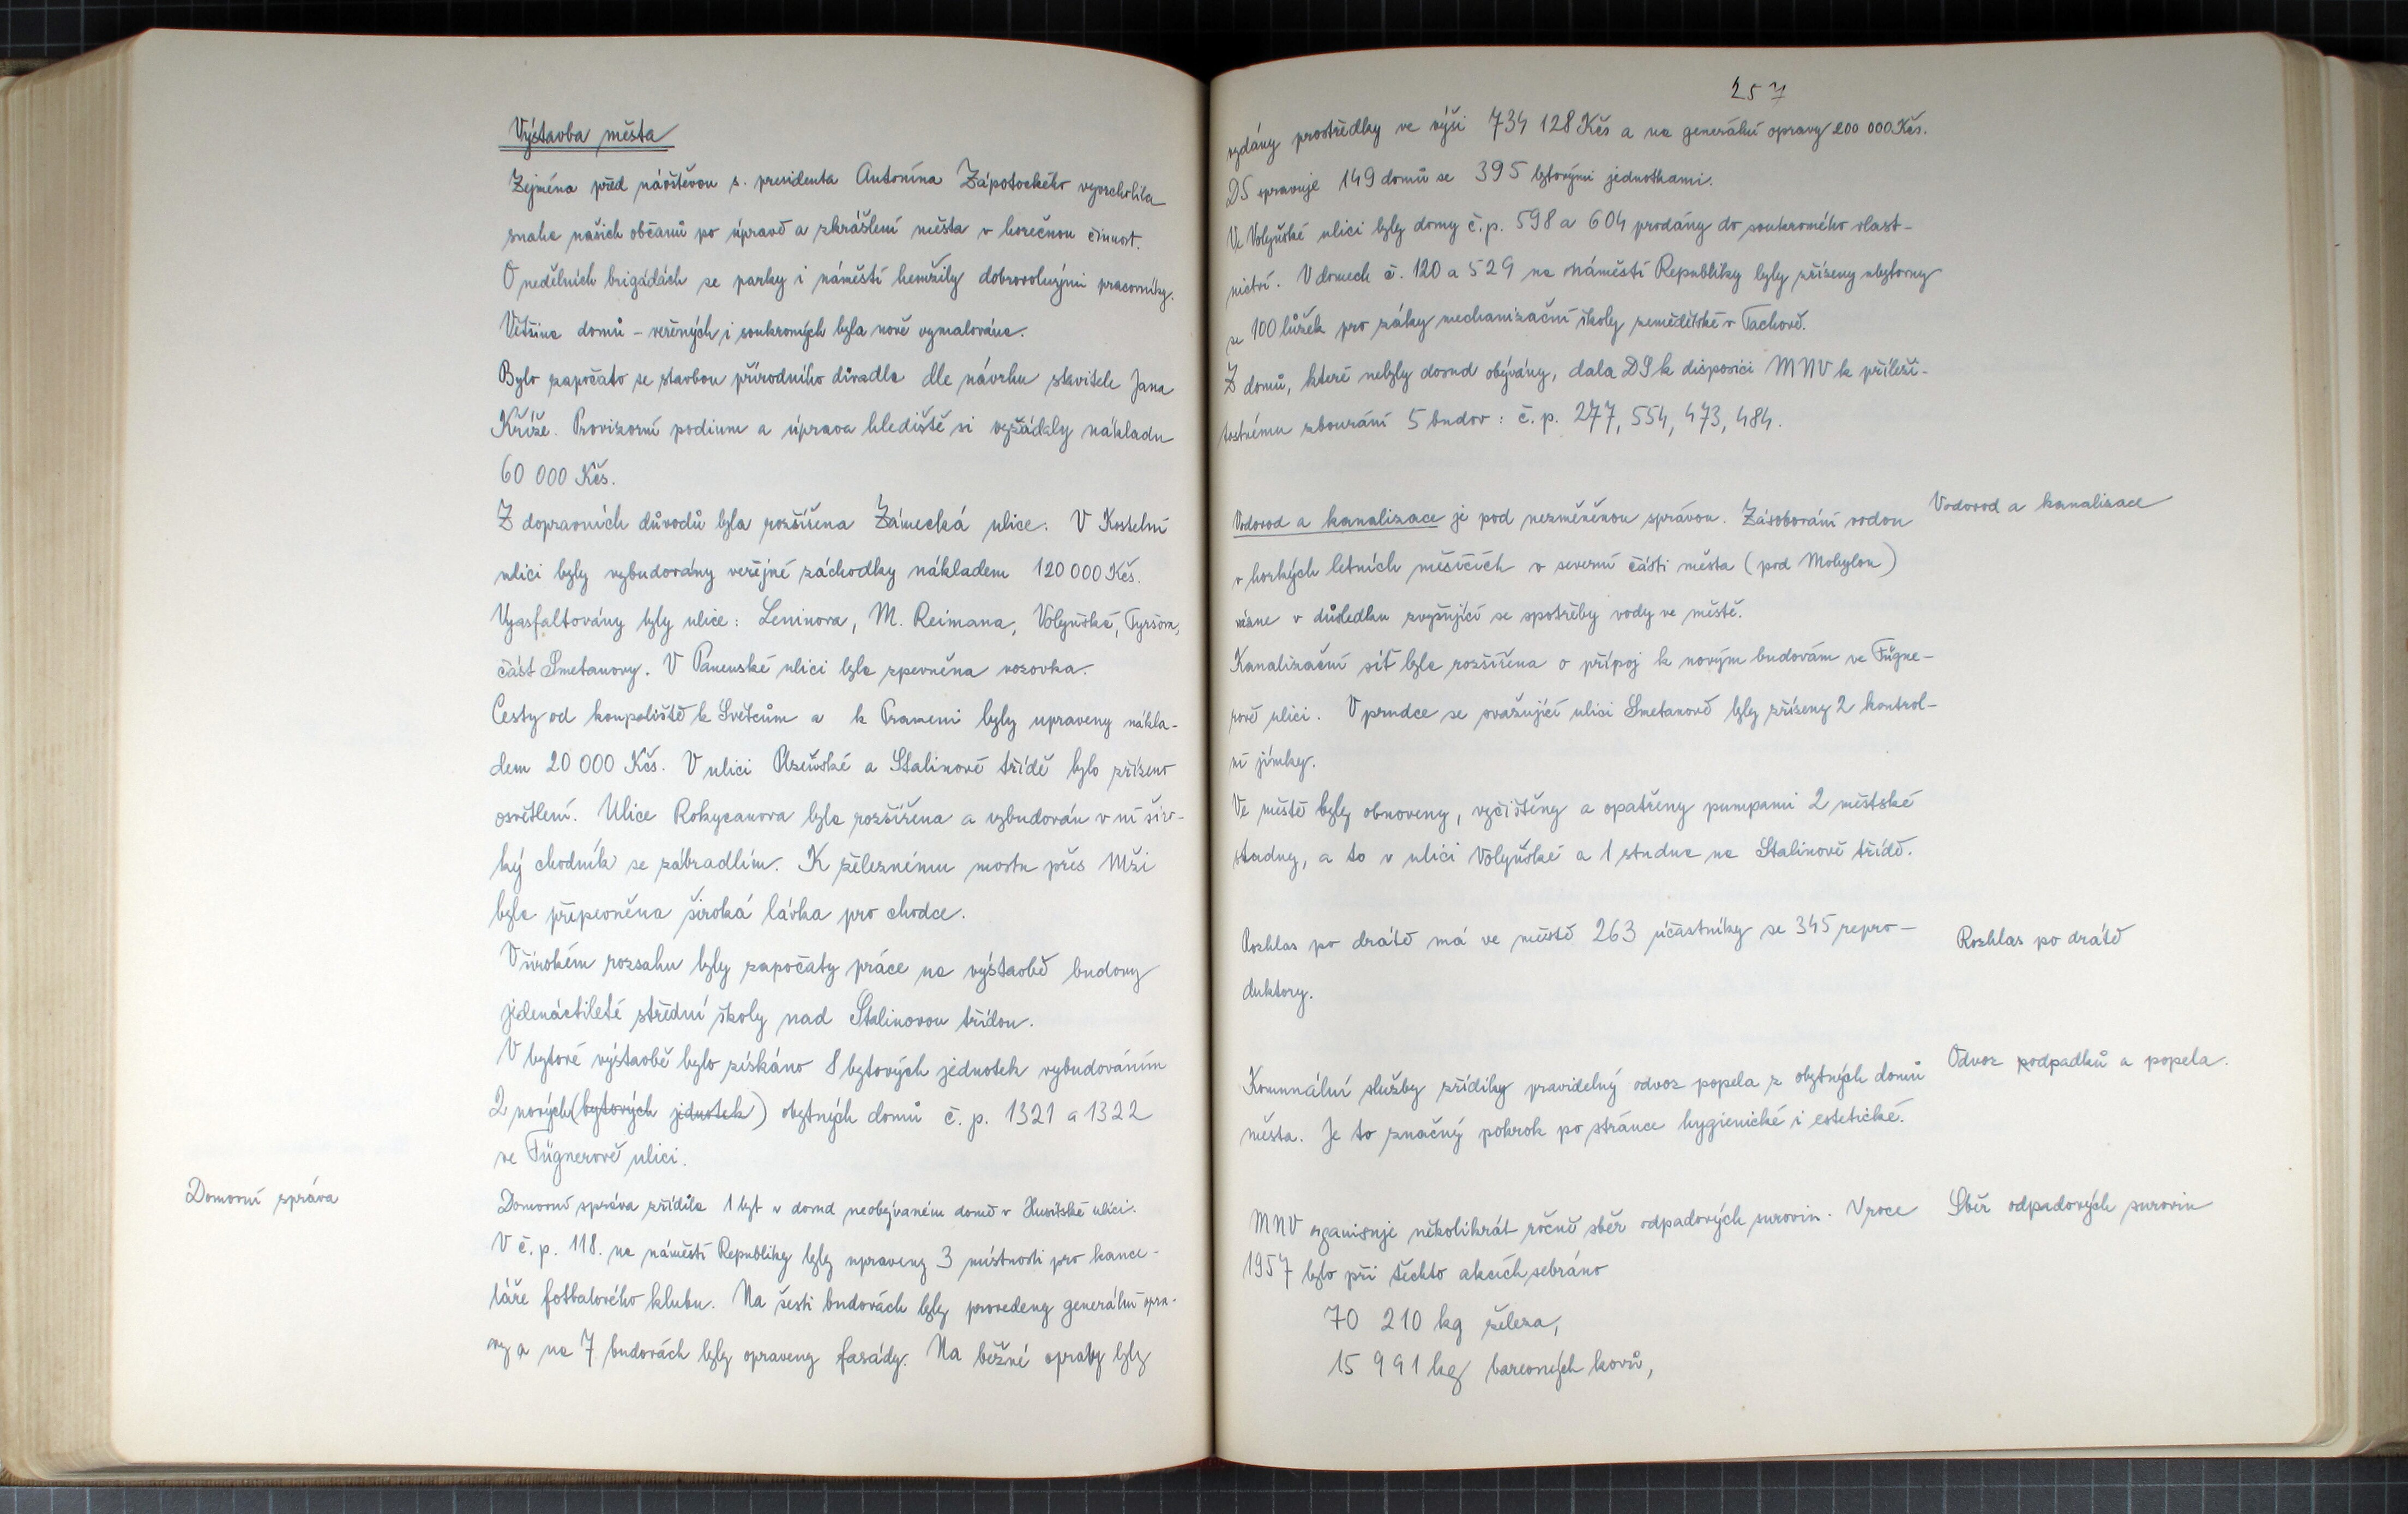 Výstavba města
Zejména před návštěvou s. presidenta Antonína Zápotockého vyvrcholila
snaha našich občanů po úpravě a zkrášlení města v horečnou činnost.
O nedělních brigádách se parky i náměstí hemžily dobrovolnými pracovníky.
Většina domů – veřejných i soukromých byla nově vymalována.
Bylo započato se stavbou přírodního divadla dle návrhu stavitele Jana
Kříže. Provizorní podium a úprava hlediště si vyžádaly nákladu
60 000 Kčs.
Z dopravních důvodů byla rozšířena Zámecká ulice. V Kostelní
ulici byly vybudovány veřejné záchodky nákladem 120 000 Kčs.
Vyasfaltovány byly ulice: Leninova, M. Reimana, Volyňská, Tyršova,
část Smetanovy. V Panenské ulici byla zpevněna vozovka.
Cesty od koupaliště k Světcům a k Prameni byly upraveny nákla-
dem 20 000 Kčs. V ulici Plzeňské a Stalinově třídě bylo zřízeno
osvětlení. Ulice Rokycanova byla rozšířena a vybudován v ní širo-
ký chodník se zábradlím. K železnému mostu přes Mži
byla připevněna široká lávka pro chodce.
V širokém rozsahu byly započaty práce na výstavbě budovy
jedenáctileté střední školy nad Stalinovou třídou.
V bytové výstavbě bylo získáno 8 bytových jednotek vybudováním
2 nových (bytových jednotek) obytných domů č. p. 1321 a 1322
ve Fügnerově ulici.
Domovní správa
Domovní správa zřídila 1 byt v dosud neobývaném domě v Husitské ulici.
V č. p. 118. na náměstí Republiky byly upraveny 3 místnosti pro kance-
láře fotbalového klubu. Na šesti budovách byly provedeny generální opra-
vy a na 7 budovách byly opraveny fasády. Na běžné opravy byly
257
vydány prostředky ve výši 734 128 Kčs a na generální opravy 200 000 Kčs.
DS spravuje 149 domů se 395 bytovými jednotkami.
Ve Volyňské ulici byly domy č. p. 598 a 604 prodány do soukromého vlast-
nictví. V domech č. 120 a 529 na náměstí Republiky byly zřízeny ubytovny
se 100 lůžek pro žáky mechanizační školy zemědělské v Tachově.
Z domů, které nebyly dosud obývány, dala DS k disposici MNV k příleži-
tostnému zbourání 5 budov: č. p. 277, 554, 473, 484.
Vodovod a kanalizace je pod nezměněnou správou. Zásobování vodou
Vodovod a kanalizace
v horkých letních měsících v severní části města (pod Mohylou)
vázne v důsledku zvyšující se spotřeby vody ve městě.
Kanalizační síť byla rozšířena o přípoj k novým budovám ve Fügne-
rově ulici. V prudce se svažující ulici Smetanově byly zřízeny 2 kontrol-
ní jímky.
Ve městě byly obnoveny, vyčištěny a opatřeny pumpami 2 městské
studny, a to v ulici Volyňské a 1 studna na Stalinově třídě.
Rozhlas po drátě má ve městě 263 účastníky se 345 repro-
Rozhlas po drátě
duktory.
Komunální služby zřídily pravidelný odvoz popela z obytných domů
Odvoz podpadků a popela.
města. Je to značný pokrok po stránce hygienické i estetické.
MNV organisuje několikrát ročně sběr odpadových surovin. V roce
Sběr odpadových surovin
1957 bylo při těchto akcích sebráno
70 210 kg železa,
15 991 kg barevných kovů,